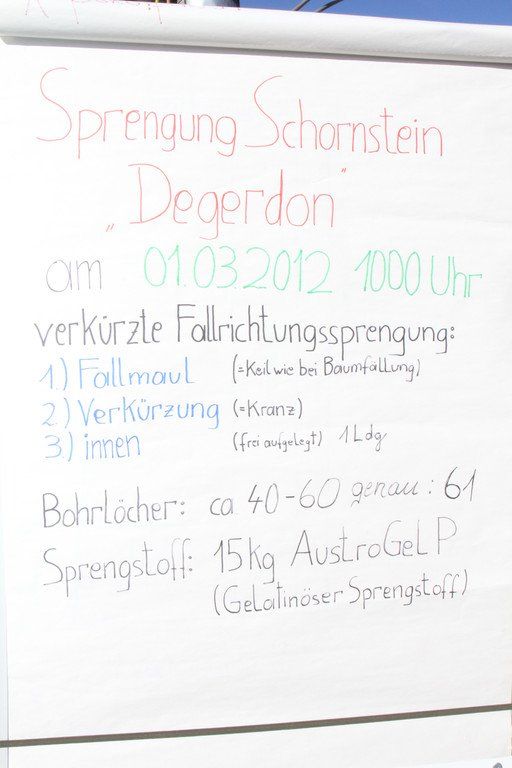 Sprengung Schornstein
„Degerdon"
am 01.03.2012 1000 Uhr
verkürzte Fallrichtungssprengung:
1.) Fallmaul (=Keil wie bei Baumfällung)
2.) Verkürzung (=Kranz)
3.) innen (frei aufgelegt) 1 Ldg
Bohrlöcher: ca 40-60 genau: 61
Sprengstoff: 15kg AustroGel P
(Gelatinöser Sprengstoff)